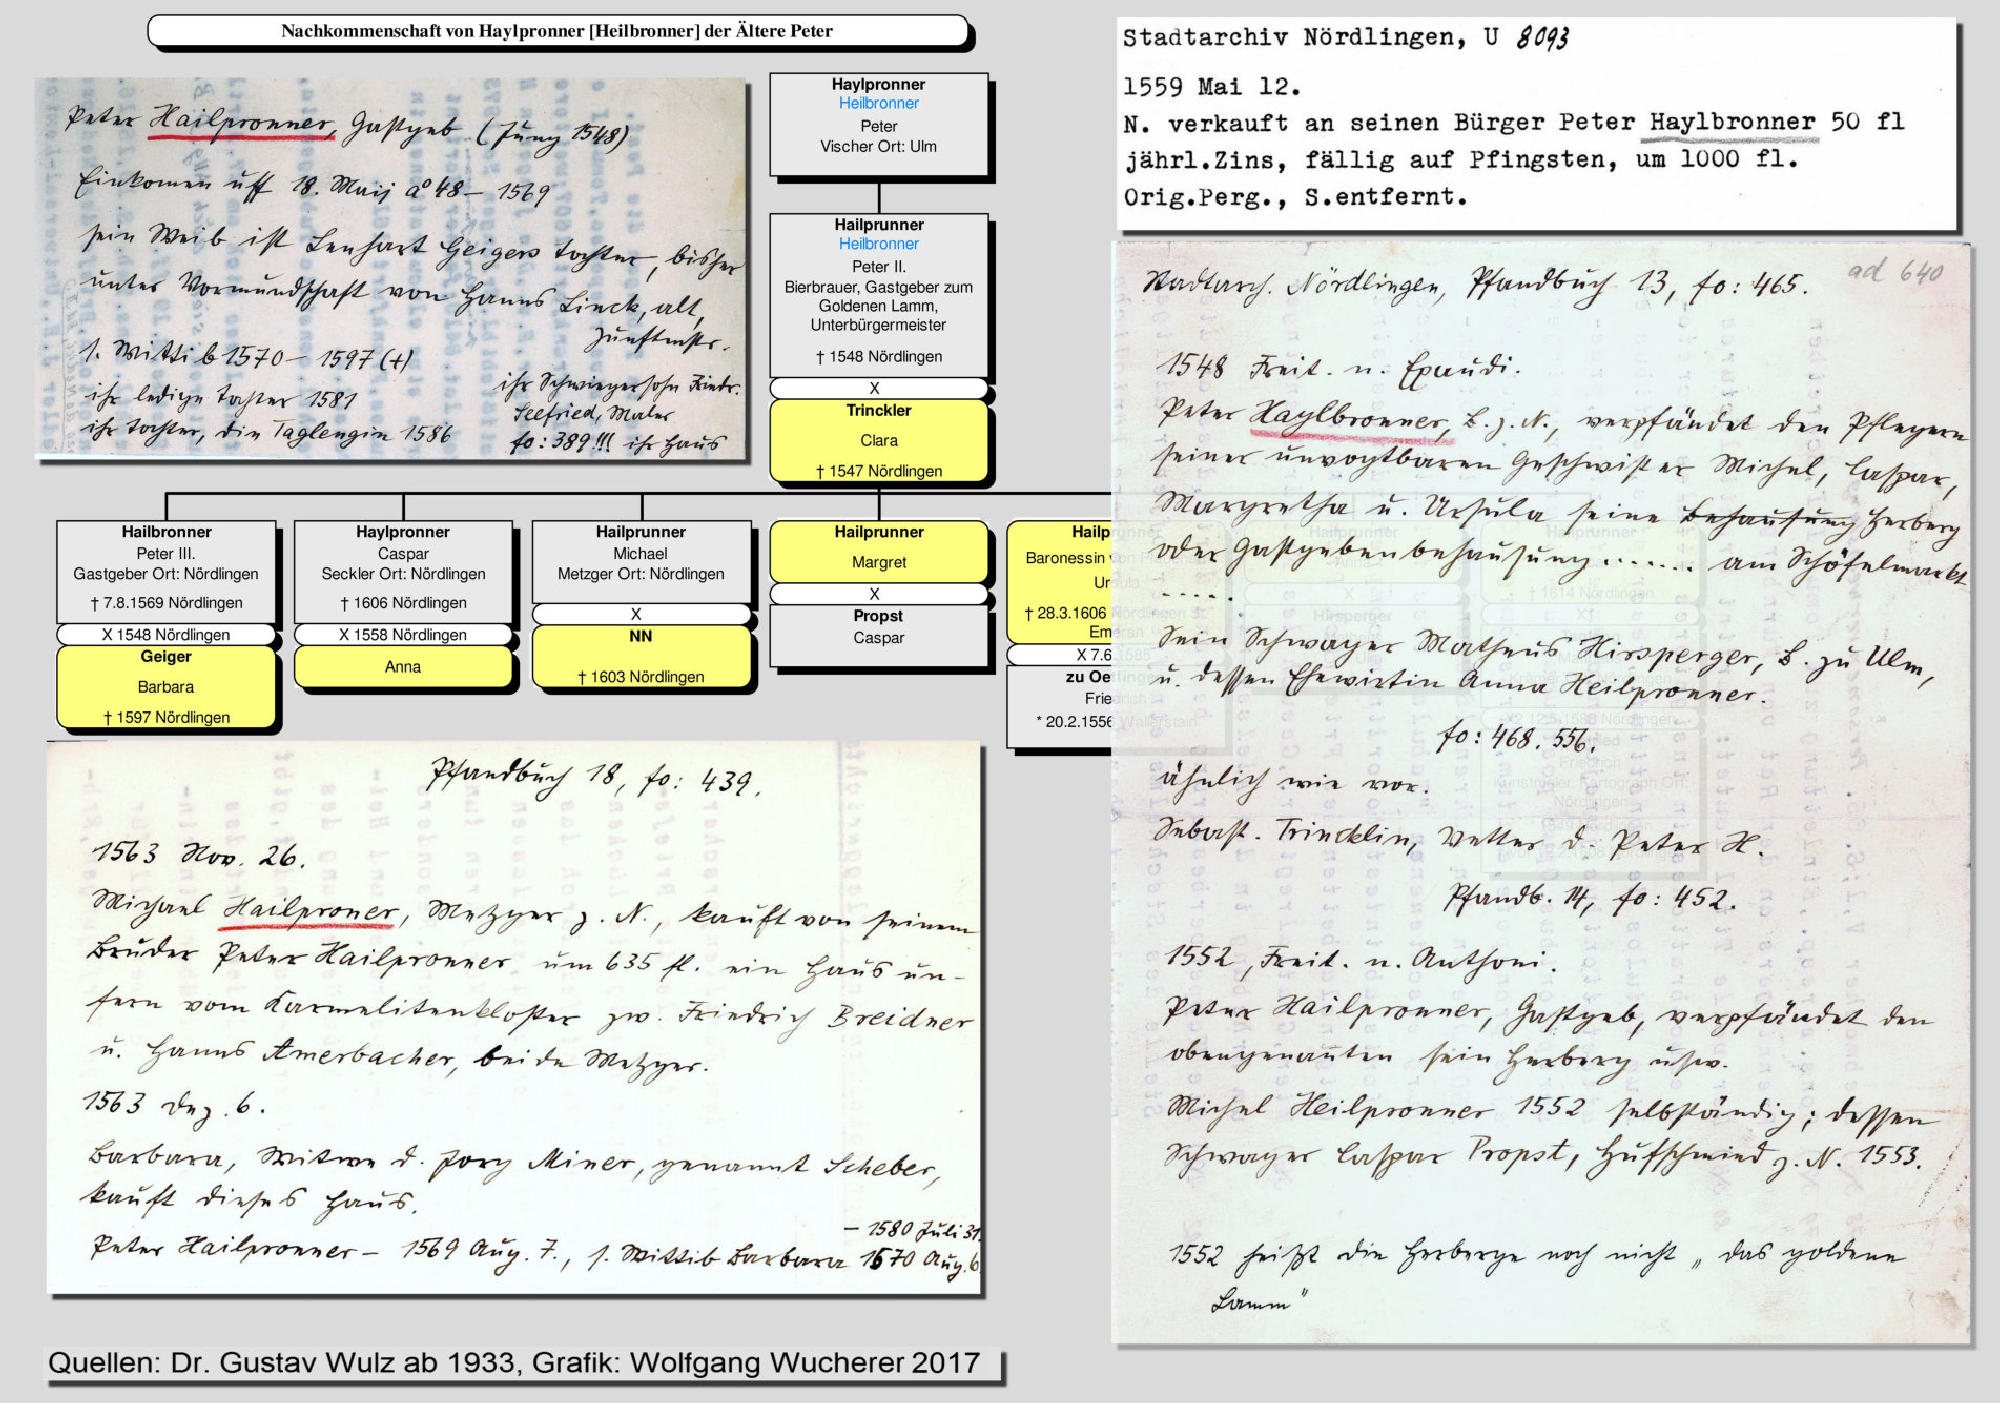 Nachkommenschaft von Haylpronner [Heilbronner] der Ältere Peter
Peter Hailpronner, Gastgeb (Jung 1548)
Einkomen uff 18. Maij aº 48 – 1569
sein Weib ist Lenhart Geigers tochter, bisher
unter Vormundschaft von Hanns Linck, alt,
Zunftmstr.
s. Wittib 1570 – 1597 (+)
ihr ledige tochter 1581
ihr tochter, die Taglengin 1586
ihr Schwiegersohn Friedr.
Seefried, Maler
fo: 389!!! ihr Haus
Haylpronner
Heilbronner
Peter
Vischer Ort: Ulm
Hailprunner
Heilbronner
Peter II.
Bierbrauer, Gastgeber zum
Goldenen Lamm,
Unterbürgermeister
† 1548 Nördlingen
X
Trinckler
Clara
† 1547 Nördlingen
Hailbronner
Peter III.
Gastgeber Ort: Nördlingen
† 7.8.1569 Nördlingen
X 1548 Nördlingen
Geiger
Barbara
† 1597 Nördlingen
Haylpronner
Caspar
Seckler Ort: Nördlingen
† 1606 Nördlingen
X 1558 Nördlingen
Anna
Hailprunner
Michael
Metzger Ort: Nördlingen
X
NN
† 1603 Nördlingen
Hailprunner
Margret
X
Propst
Caspar
Hailp
Baronessin
Ur
† 28.3.1606 Nördlingen
Em
X 7.6.1585
zu Oe
Friedrich
* 20.2.1556 Wallerstain
Hailprunner
Anna
X
Hirsperger
Hailprunner
† 1614 Nördlingen
X1
X2 12.5.1588 Nördlingen
Friedrich
Kunstmaler, Kartograph Ort:
Nördlingen
Stadtarchiv Nördlingen, U 8093
1559 Mai 12.
N. verkauft an seinen Bürger Peter Haylbronner 50 fl
jährl.Zins, fällig auf Pfingsten, um 1000 fl.
Orig.Perg., S.entfernt.
ad 640
Stadtarch. Nördlingen, Pfandbuch 13, fo: 465.
1548 Freit. n. Exaudi.
Peter Haylbronner, B. z. N., verpfändet den Pflegern
seiner unvogtbaren Geschwister Michel, Caspar,
Margretha u. Ursula seine Behausung Herberg
oder Gastgebenbehausung ...... am Schöfelmarkt
.....
Sein Schwager Matheus Hirsperger, B. zu Ulm,
u. dessen Ehewirtin Anna Heilpronner.
fo: 468. 556.
ähnlich wie vor.
Sebast. Trincklin, Vetter d. Peter H.
Pfandb. 14, fo: 452.
1552, Freit. n. Anthoni.
Peter Hailpronner, Gastgeb, verpfändet den
obengenannten sein Herberg usw.
Michel Heilpronner 1552 selbständig; dessen
Schwager Caspar Propst, Hufschmied z. N. 1553.
1552 heißt die Herberge noch nicht „das goldene
Lamm"
Pfandbuch 18, fo: 439.
1563 Nov. 26.
Michael Hailproner, Metzger z. N., kauft von seinem
Bruder Peter Hailpronner um 635 fl. ein Haus un-
fern vom Karmelitenkloster zw. Friedrich Breidner
u. Hanns Amerbacher, beide Metzger.
1563 Dez. 6.
Barbara, Witwe d. Jorg Miner, genannt Scheber,
kauft dieses Haus.
– 1580 Juli 31.
Peter Hailpronner – 1569 Aug. 7., s. Wittib Barbara 1570 Aug. 6
Quellen: Dr. Gustav Wulz ab 1933, Grafik: Wolfgang Wucherer 2017